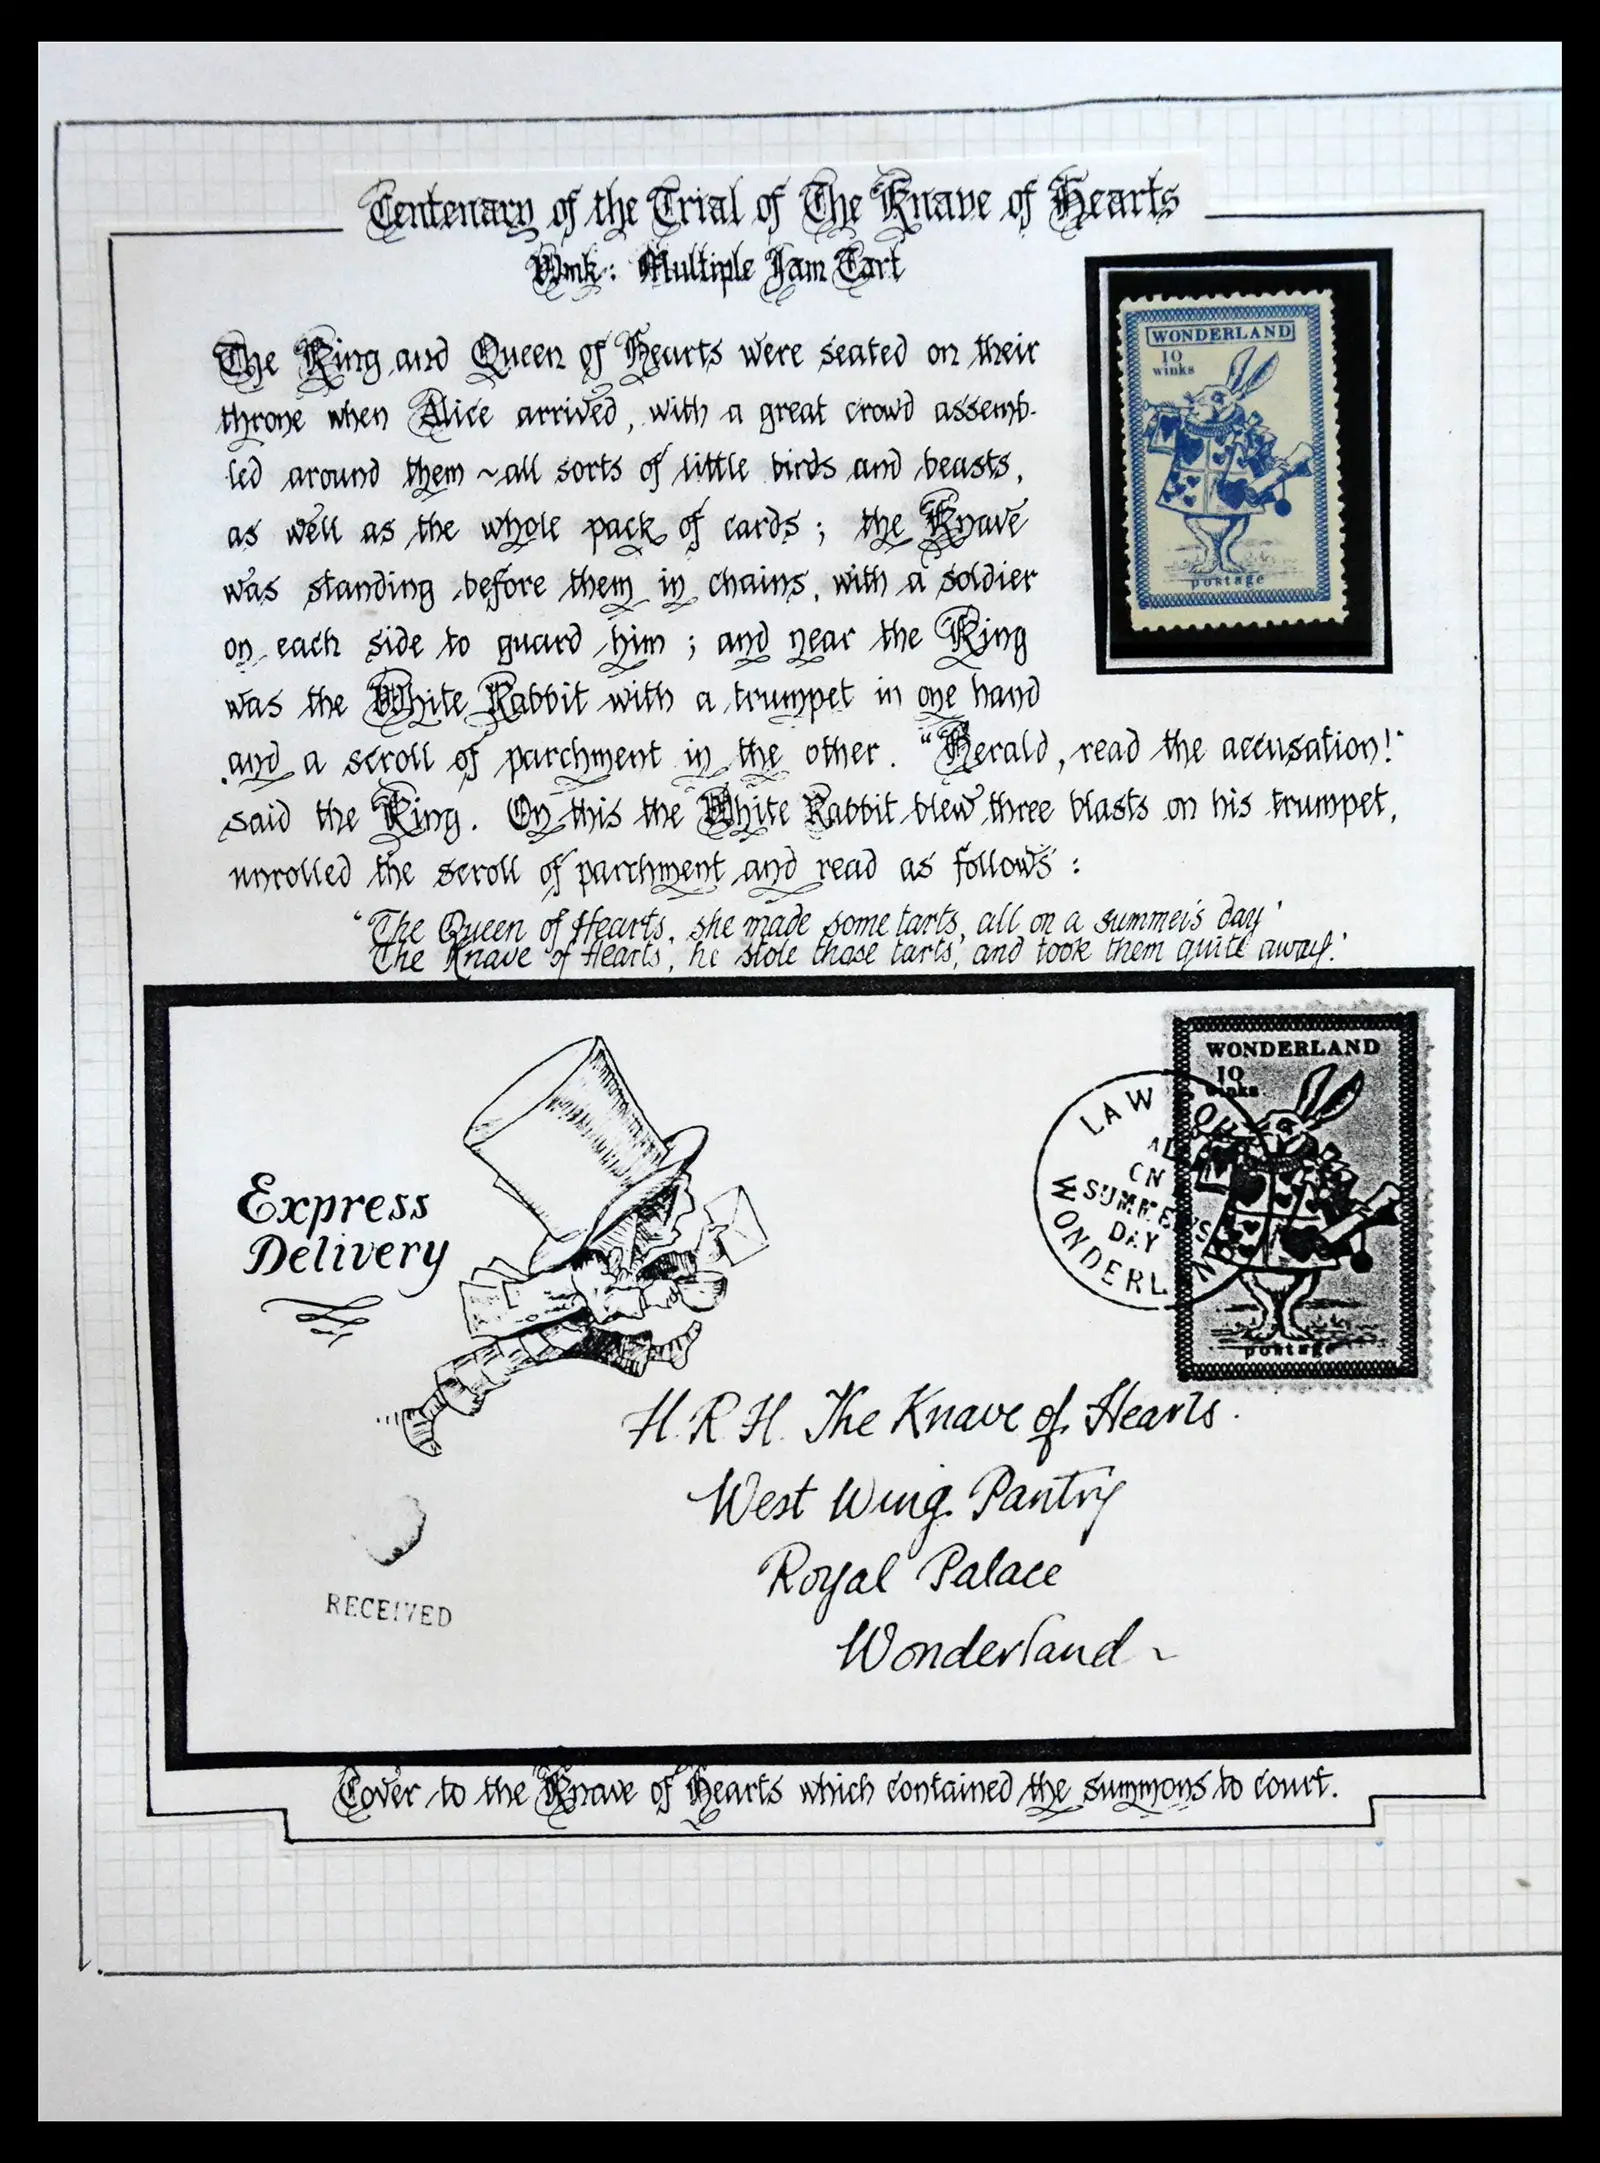 Centenary of the Trial of The Knave of Hearts
Wmk: Multiple Jam Tart
WONDERLAND
10
winks
postage
The King and Queen of Hearts were seated on their
throne when Alice arrived, with a great crowd assemb-
led around them ~ all sorts of little birds and beasts,
as well as the whole pack of cards; the Knave
was standing before them in chains, with a soldier
on each side to guard him; and near the King
was the White Rabbit with a trumpet in one hand
and a scroll of parchment in the other. "Herald, read the accusation!"
said the King. On this the White Rabbit blew three blasts on his trumpet,
unrolled the scroll of parchment and read as follows:
'The Queen of Hearts, she made some tarts, all on a summer's day'
The Knave of Hearts, he stole those tarts, and took them quite away.'
WONDERLAND
10
winks
postage
LAW
ON
SUMMER'S
DAY
Express
Delivery
H.R.H. The Knave of Hearts.
West Wing Pantry
Royal Palace
Wonderland ~
RECEIVED
Cover to the Knave of Hearts which contained the summons to court.